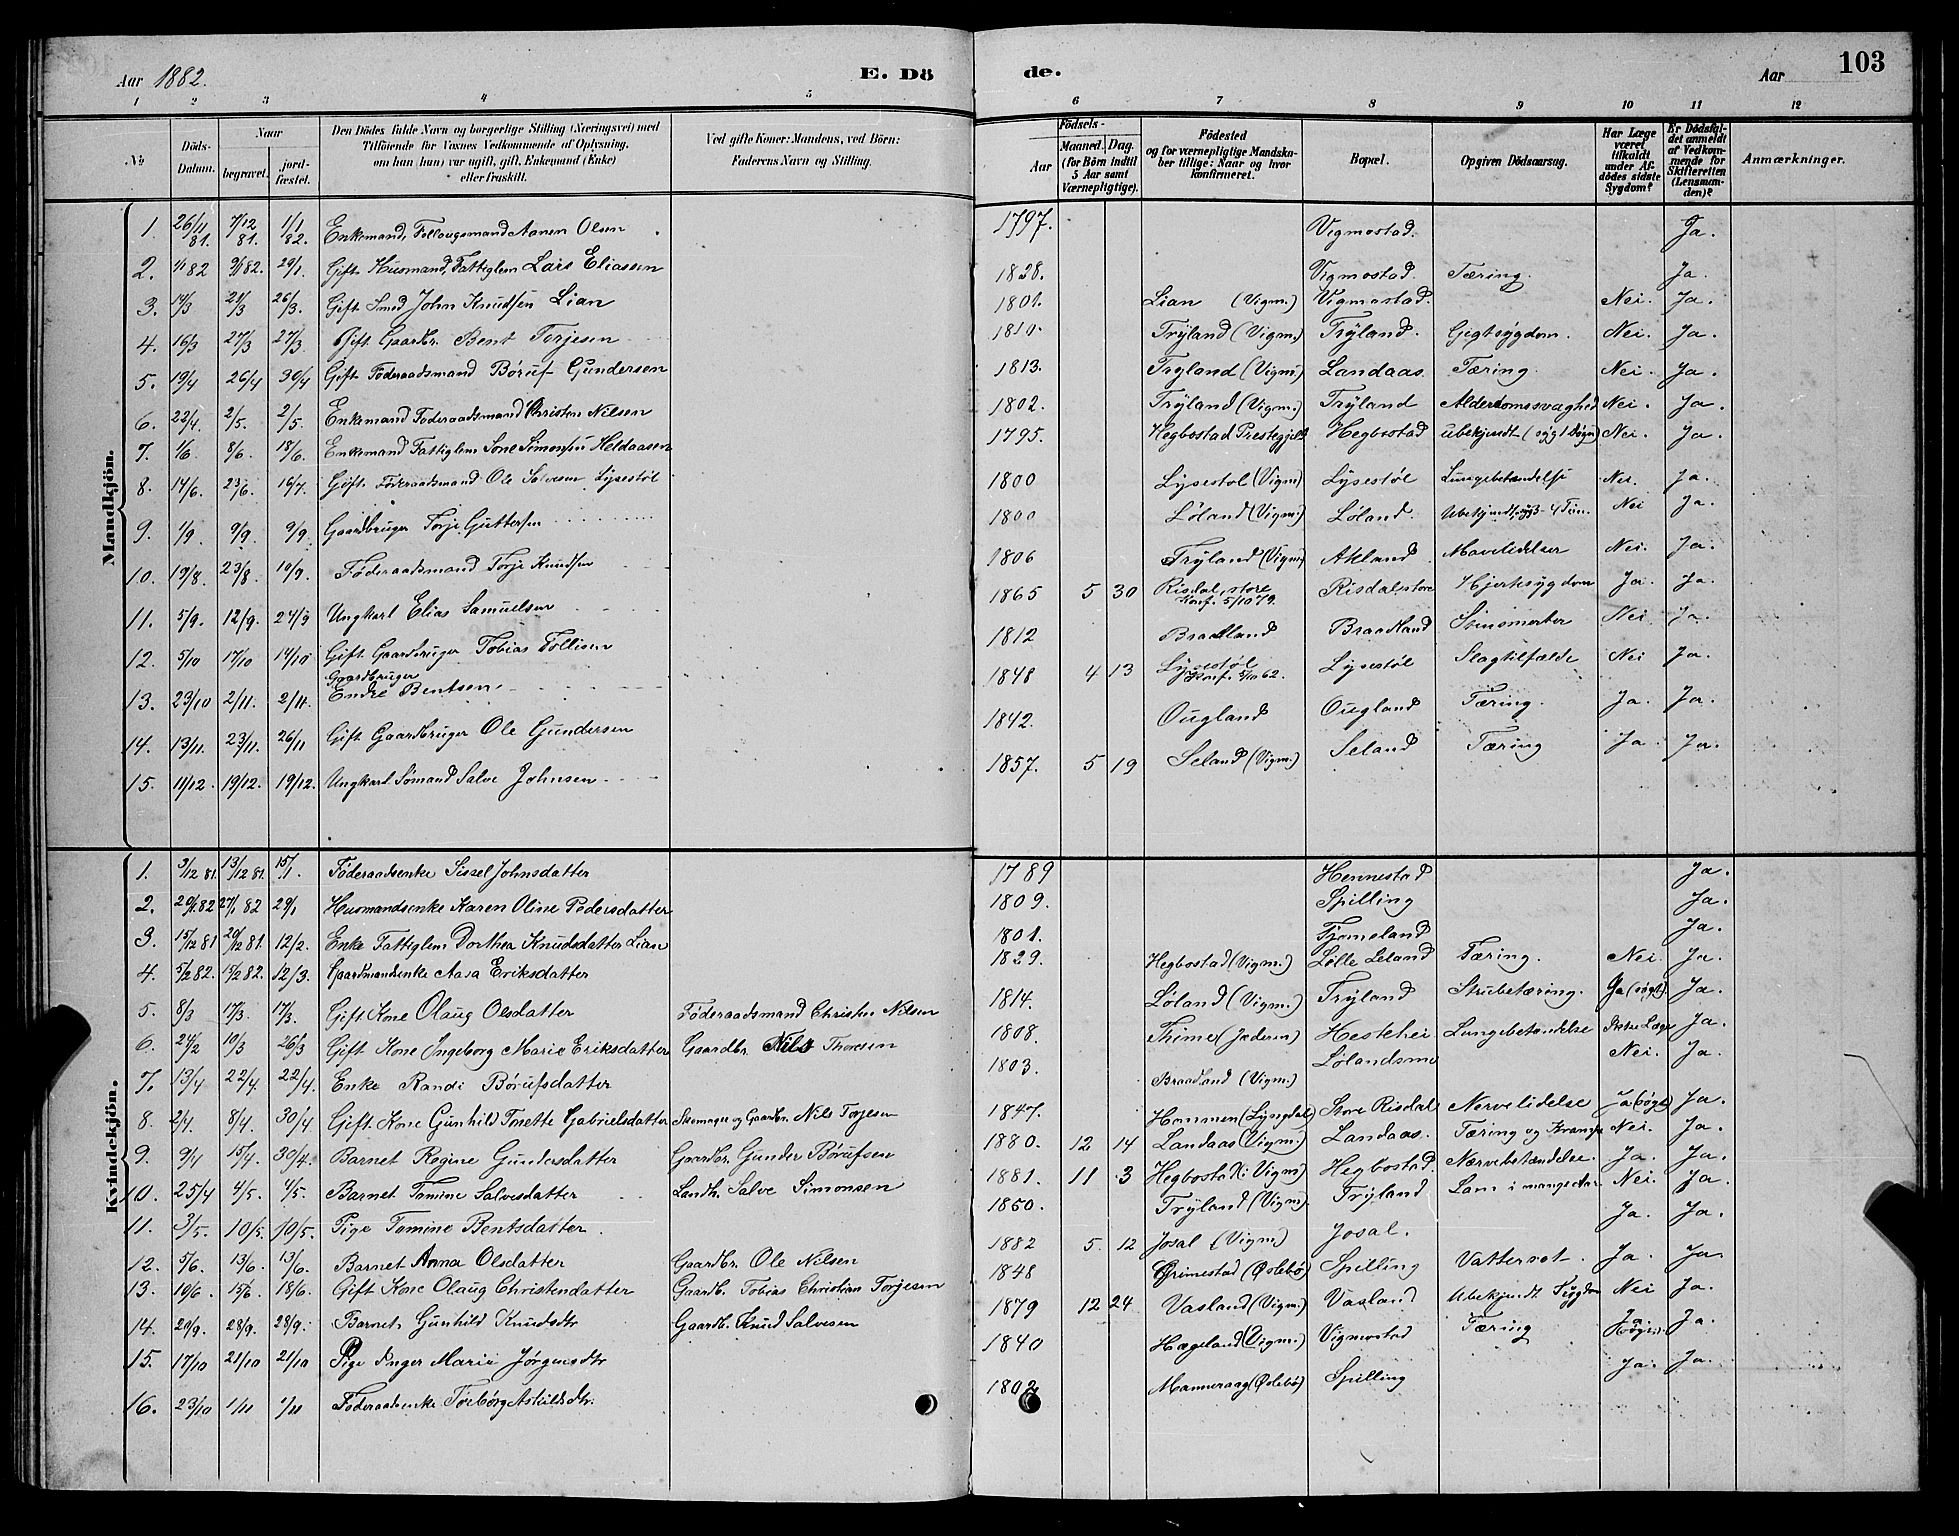 Aar 1882. E. Dö de. Aar 103
1 2 3 4 5 6 7 8 9 10 11 12
No
Döds-Datum.
Naar
begravet.
jord-fæstet.
Den Dödes fulde Navn og borgerlige Stilling (Næringsvei) med
Tilföiende for Voxnes Vedkommende af Oplysning,
om han (hun) var ugift, gift, Enkemand (Enke)
eller fraskilt.
Ved gifte Koner: Mandens, ved Börn:
Faderens Navn og Stilling.
Födsels-
Aar
Maaned. Dag.
(for Börn indtil
5 Aar samt
Værnepligtige).
Födested
og for værnepligtige Mandska-
ber tillige: Naar og hvor
konfirmeret.
Bopæl.
Opgiven Dödsaarsag.
Har Læge
været
tilkaldt
under Af-
dödes sidste
Sygdom?
Er Dödsfal-
det anmeldt
af Vedkom-
mende for
Skifteretten
(Lensman-
den)?
Anmærkninger.
Mandkjön.
1. 26/11 81. 7/12 81. 1/1 82. Enkemand, Aanen Olsen 1797. Vigmostad. Ja.
2. 1/1 82 9/1 82. 29/1. Gift Husmand, Fattiglem Lars Eliassen 1828. Vigmostad. Tæring. Ja.
3. 14/3 21/3 26/3. Gift Smed John Knudsen Lian 1801. Lian (Vigm.) Vigmostad. Nei. Ja.
4. 16/3 27/3 27/3. Gift Gaardbr. Bent Torjesen 1810. Trÿland (Vigm.) Trÿland. Gigtsygdom. Nei. Ja.
5. 19/4 26/4 30/4 Gift Føderaadsmand Børuf Gundersen 1813. Tryland (Vigm.) Landaas. Tæring. Nei. Ja.
6. 22/4. 2/5. 2/5. Enkemand Føderaadsmand Christen Nilsen 1802. Trÿland (Vigm.) Trÿland Alderdomssvaghed Nei. Ja.
7. 1/6 8/6. 18/6. Enkemand Fattiglem Sone Simonsen Heldaasen 1795. Hegbostad Prestegjeld Hegbostad ubekjendt (syg 1 Døgn) Nei. Ja.
8. 14/6. 23/6. 16/7. Gift Føderaadsmand Ole Salvesen Lÿsestøl 1800 Lÿsestøl (Vigm) Lÿsestøl Lungebetændelse Nei. Ja.
9. 1/9. 9/9. 9/9. Gaardbruger Torje Guttersen 1800 Løland (Vigm.) Løland. Ubekjendt, syg 3-4 Tim. Nei Ja.
10. 19/8. 23/8. 10/9. Føderaadsmand Torje Knudsen 1806 Trÿland (Vigm) Akland Mavelidelser Nei. Ja.
11. 5/9. 12/9. 24/9 Ungkarl Elias Samuelsen 1865 5 30 Risdal, store Konf. 5/10 79. Risdal, store Hjertesygdom Ja. Ja.
12. 5/10 17/10 14/10 Gift Gaardbruger Tobias Tollisen 1812 Braadland Braadland Nei Ja.
13. 23/10 2/11. 2/11. Gaardbruger Endre Bentsen 1848 4 13 Lÿsestøl Konf. 5/10 62. Lÿsestøl Slagtilfælde Nei Ja.
14. 13/11. 23/11. 26/11 Gift Gaardbruger Ole Gundersen 1842. Ougland Ougland Tæring. Ja. Ja.
15. 11/12. 19/12. 19/12. Ungkarl Sømand Salve Johnsen 1857. 5 19 Seland (Vigm.) Seland Tæring Ja. Ja.
Kvindekjön.
1. 3/12 81. 13/12 81. 15/1. Føderaadsenke Sissel Johnsdatter 1789 Hennestad Ja.
2. 20/1 82 27/1 82 29/1 Husmandsenke Karen Oline Pedersdatter 1809. Spilling Ja.
3. 15/12 81 20/12 81. 12/2. Enke Fattiglem Dorthea Knudsdatter Lian 1801. Fjomeland Ja.
4. 5/2 82. 15/2 82. 12/3. Gaardmandsenke Aasa Eriksdatter 1829. Hegbostad (Vigm.) Lølle Leland Tæring. Nei. Ja.
5. 8/3 17/3. 17/3. Gift Kone Olaug Olsdatter Føderaadsmand Christen Nilsen 1814. Løland (Vigm.) Trÿland Strubetæring. Ja (søgt) Ja.
6. 24/2 10/3 26/3 Gift Kone Ingeborg Marie Eriksdatter Gaardbr. Nils Thorsen 1808. Thime (Jæderen) Hestehei Lungebetændelse Læge Ja.
7. 13/4 22/4. 22/4. Enke Randi Børufsdatter 1803. Braadland (Vigm.) Lølandsmo Nei. Ja.
8. 2/4. 8/4. 30/4 Gift Kone Gunhild Tonette Gabrielsdatter Skomager og Gaardbr. Nils Torjesen 1847. Hommen (Lyngdal) Store Risdal Nervelidelse Ja (søgt) Ja.
9. 9/4 15/4. 30/4. Barnet Regine Gundersdatter Gaardbr. Gunder Børufsen 1880. 12 14 Landaas (Vigm.) Landaas. Tæring og Krampe Nei. Ja.
10. 25/4 4/5. 4/5. Barnet Tomine Salvesdatter Landh. Salve Simonsen 1881. 11 3 Hegbostad (Vigm) Hegbostad. Nervebetændelse. Ja. Ja.
11. 3/5. 10/5. 10/5. Pige Tomine Bentsdatter. 1850. Trÿland (Vigm.) Trÿland Lam i mange Aar Nei. Ja.
12. 5/6. 13/6. 13/6. Barnet Anna Olsdatter Gaardbr. Ole Nilsen 1882 5. 12 Josal (Vigm) Josal. Ja. Ja.
13. 10/6. 15/6. 18/6. Gift Kone Olaug Christensdatter Gaardb. Tobias Christian Torjesen 1848 Grimestad (Øslebø) Spilling Vattersot. Ja. Ja
14. 20/9. 28/9. 28/9. Barnet Gunhild Knudsdtr Gaardb. Knud Salvesen 1879 12 24 Vasland (Vigm.) Vasland Ubekjendt Sygdom Nei Ja.
15. 17/10 21/10 21/10 Pige Inger Marie Jørgensdtr 1840 Hægeland (Vigm.) Vigmostad Tæring Ja Ja.
16. 23/10 1/11 1/11 Føderaadsenke Torborg Askildsdtr. 1802 Manneraag (Øslebø) Spilling Ja. Ja.